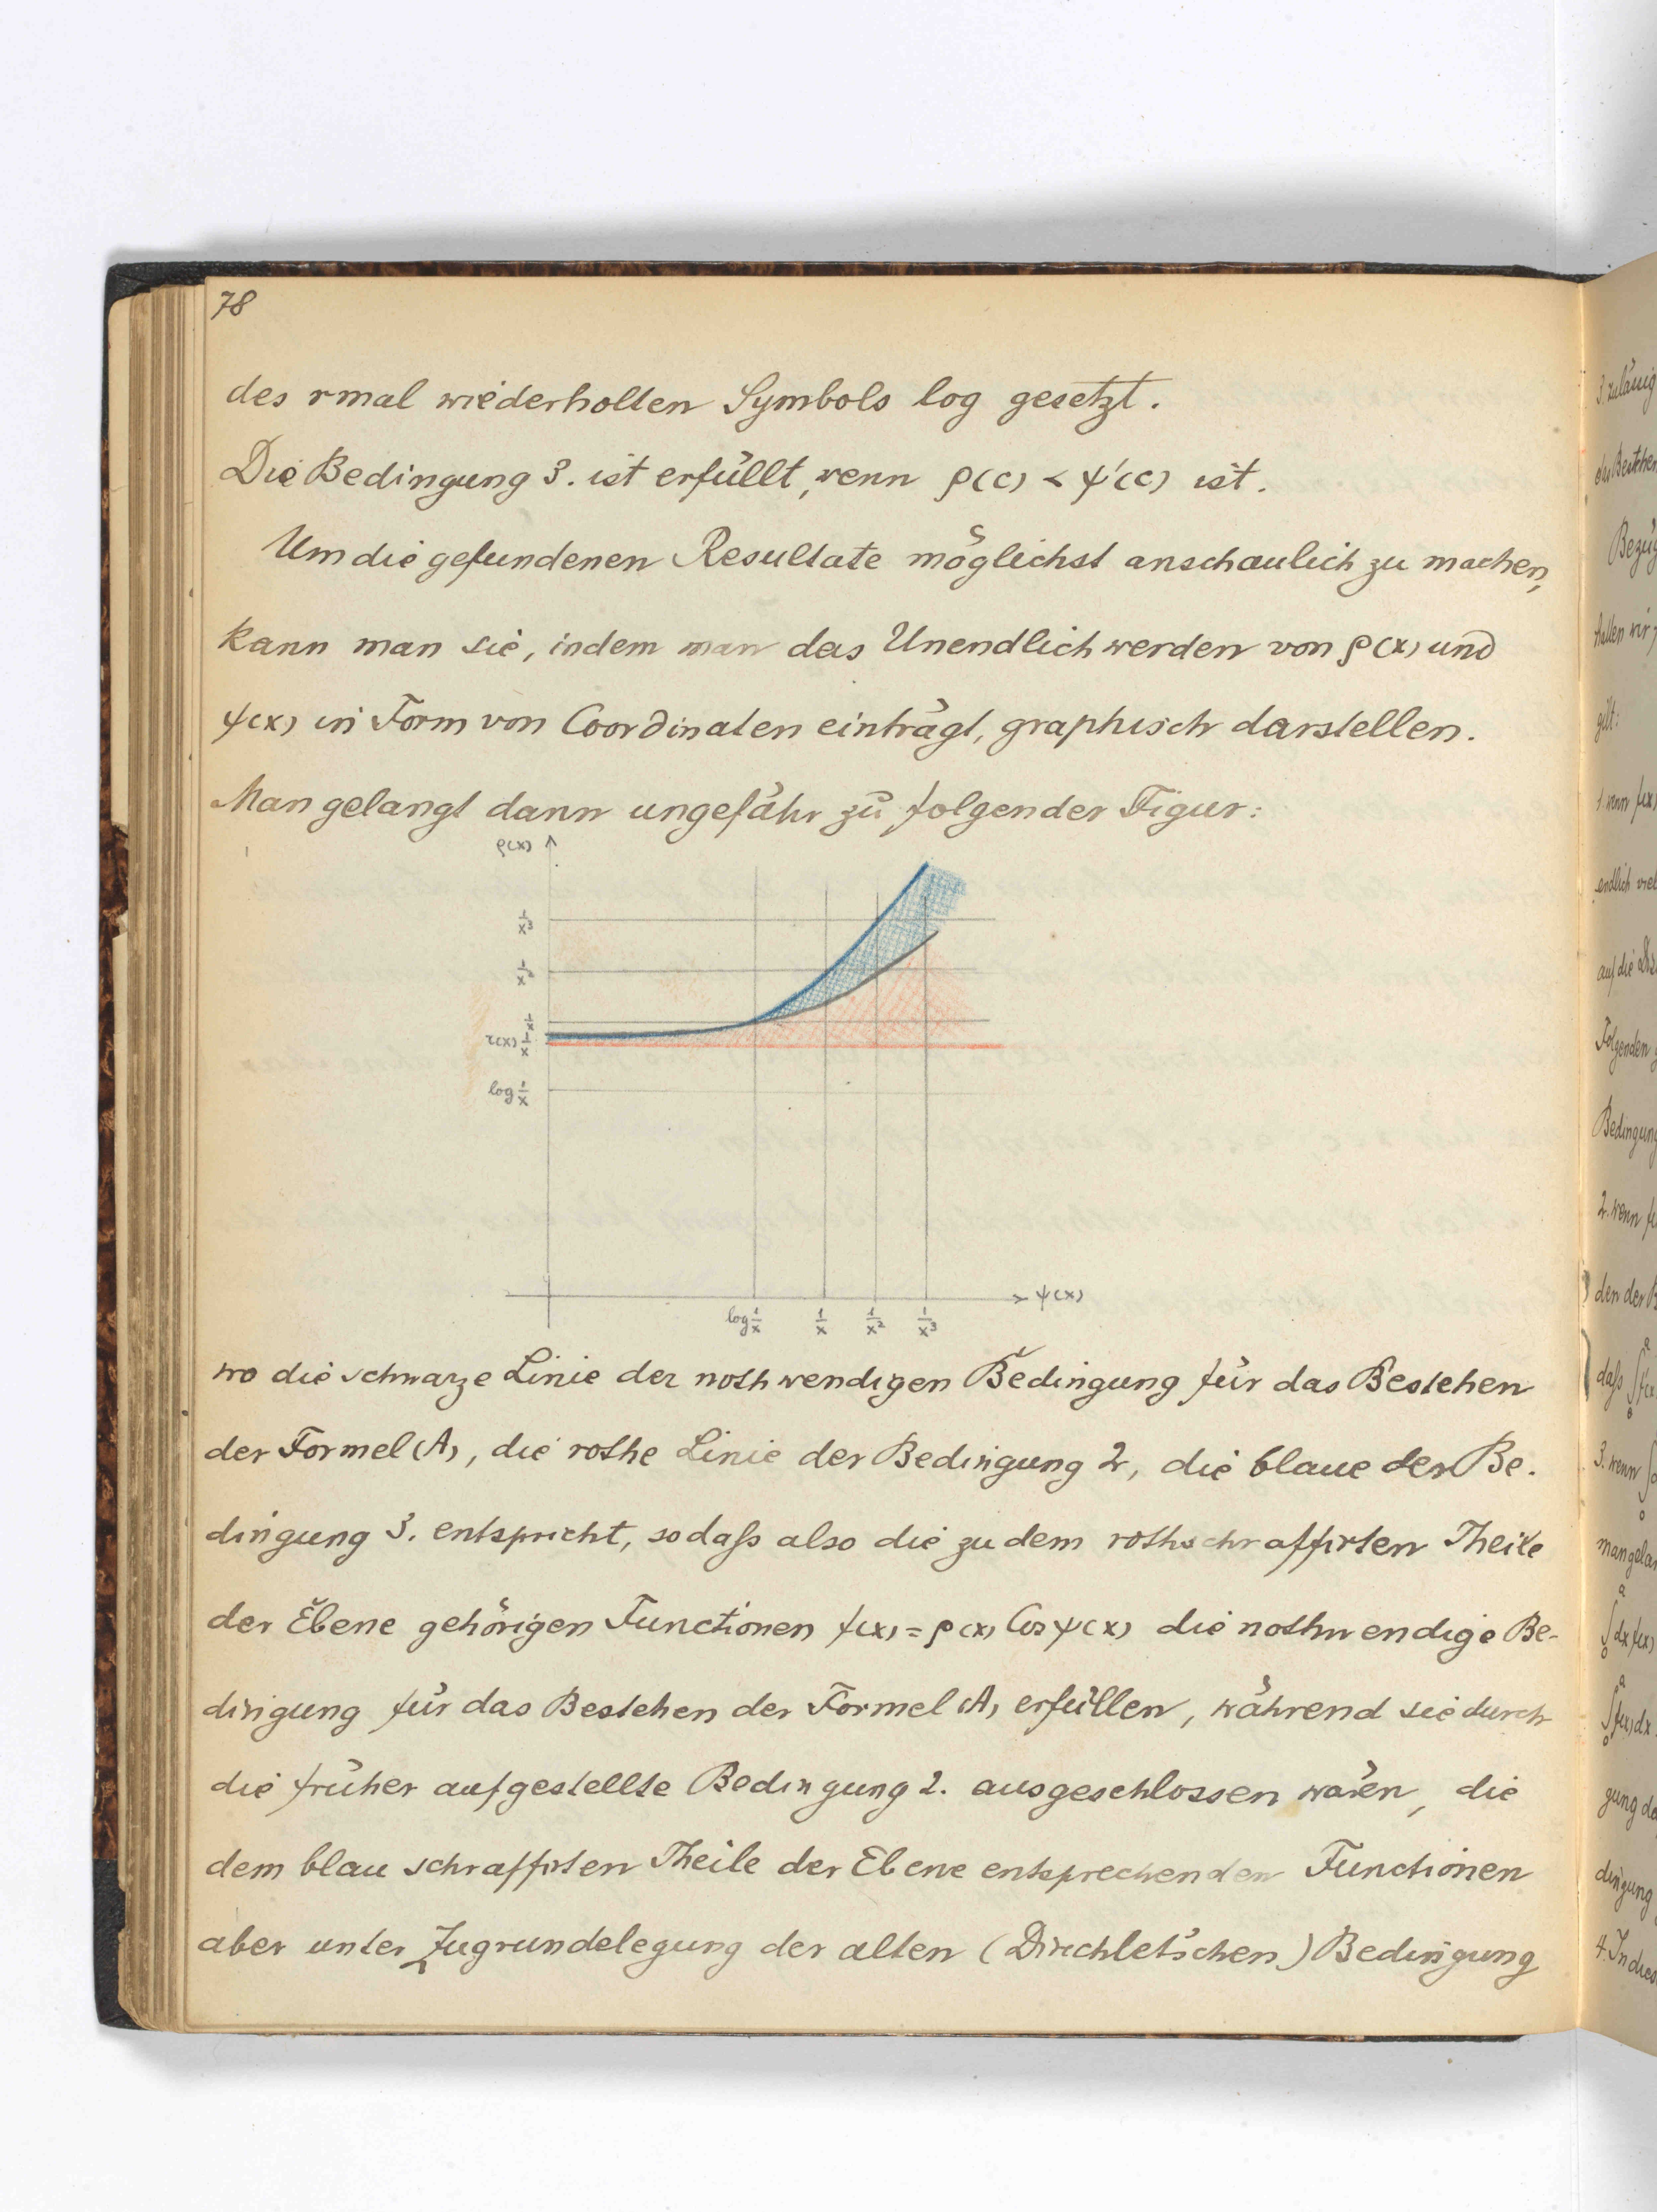 78
des rmal wiederholten Symbols log gesetzt.
Die Bedingung 3. ist erfüllt, wenn ρ(c) < ψ'(c) ist.
Um die gefundenen Resultate möglichst anschaulich zu machen,
kann man sie, indem man das Unendlichwerden von ρ(x) und
ψ(x) in Form von Coordinaten einträgt, graphisch darstellen.
Man gelangt dann ungefähr zu folgender Figur:
ρ(x)
1/x³
1/x²
1/x
τ(x) 1/x
log 1/x
log 1/x 1/x 1/x² 1/x³ ψ(x)
wo die schwarze Linie der nothwendigen Bedingung für das Bestehen
der Formel (A), die rothe Linie der Bedingung 2, die blaue der Be-
dingung 3. entspricht, sodaß also die zu dem rothschraffirten Theile
der Ebene gehörigen Functionen f(x) = ρ(x) Cos ψ(x) die nothwendige Be-
dingung für das Bestehen der Formel (A) erfüllen, während sie durch
die früher aufgestellte Bedingung 2. ausgeschlossen wären, die
dem blau schraffirten Theile der Ebene entsprechenden Functionen
aber unter Zugrundelegung der alten (Dirichlet'schen) Bedingung
3. zuläuig
das Bestehen
Bezüg
gilt:
1. wenn f(x)
endlich viel
auf die
Folgenden
Bedingung
2. wenn
den der B
daß ∫
3. wenn ∫
man gelan
∫ dx f(x)
∫ f(x) dx
gung de
dingung
4. In dies